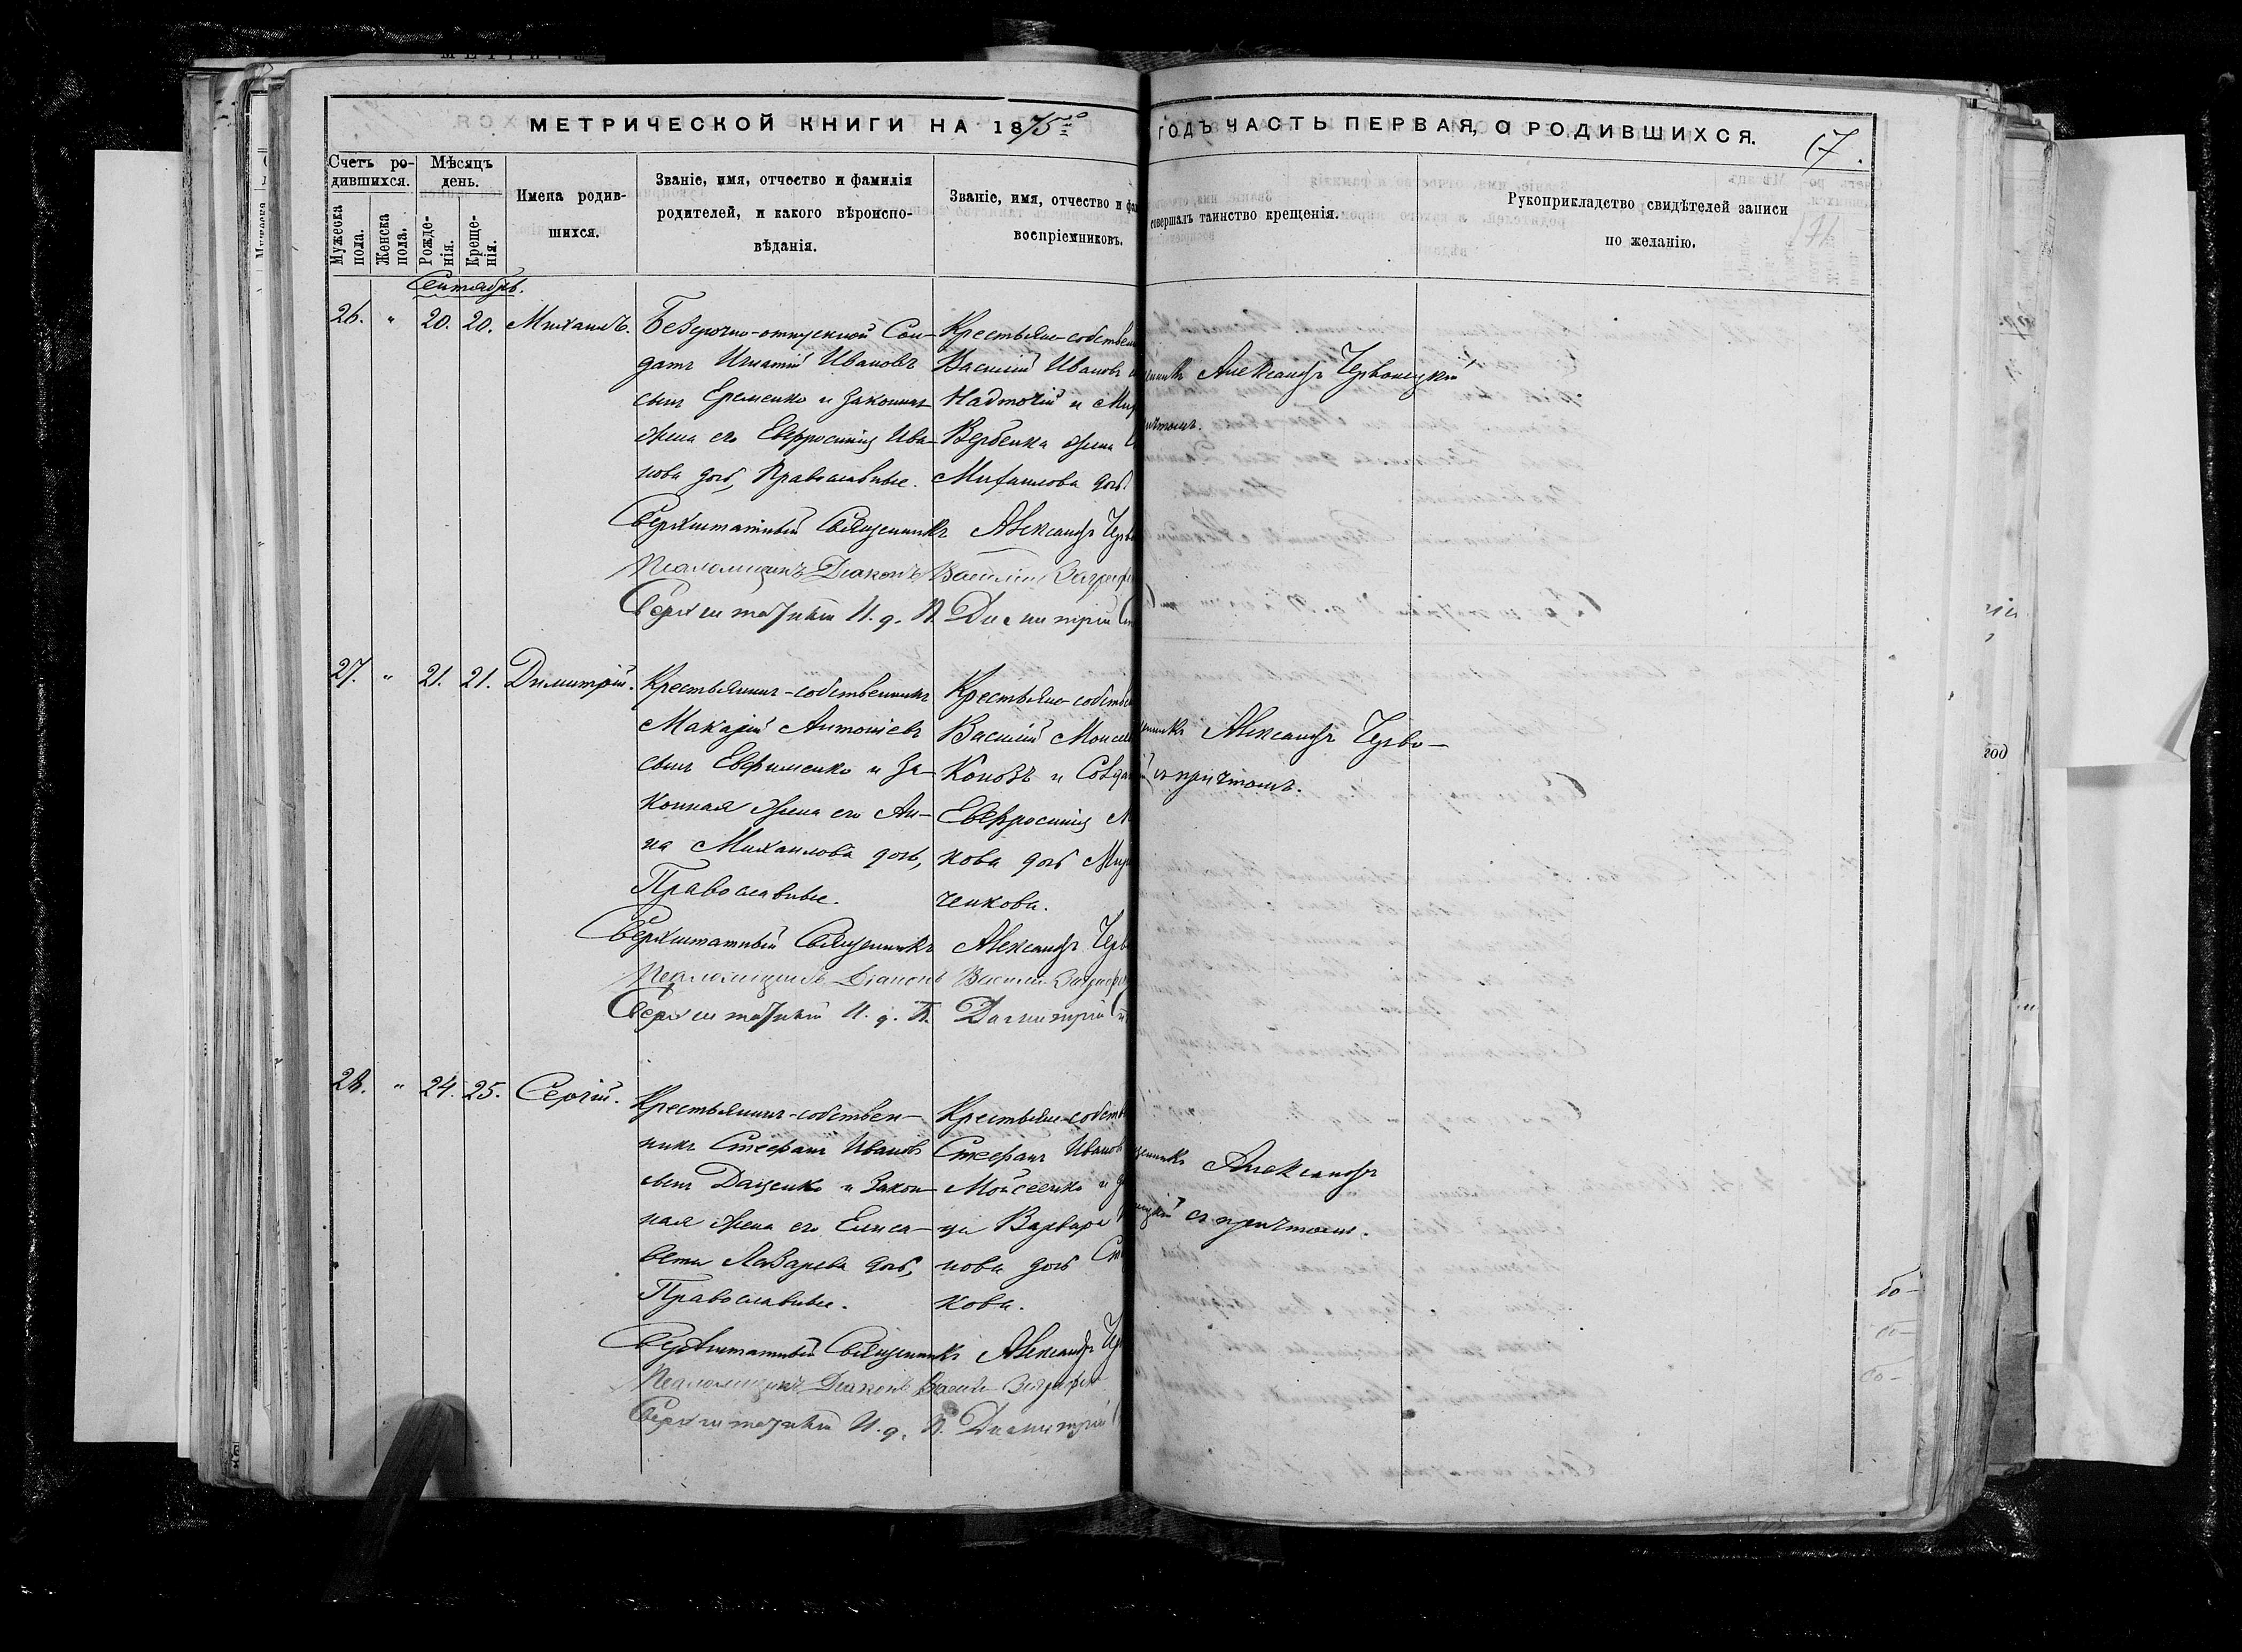 МЕТРИЧЕСКОЙ КНИГИ НА 1875го ГОДЪ ЧАСТЬ ПЕРВАЯ, О РОДИВШИХСЯ.
17.
Счетъ ро-
дившихся.
Мѣсяцъ
день.
Мужеска
пола.
Женска
пола.
Рожде-
нія.
Креще-
нія.
Имена родив-
шихся.
Званіе, имя, отчество и фамилія
родителей, и какого вѣроиспо-
вѣданія.
Званіе, имя, отчество и фа
воспріемниковъ.
совершалъ таинство крещенія.
Рукоприкладство свидѣтелей записи
по желанію.
Сентябрь.
26. " 20. 20. Михаилъ.
Безсрочно-отпускной Сол-
датъ Игнатій Ивановъ
сынъ Еременко и законная
жена его Евфросинія Ива-
нова дочь, Православные.
Крестьяне-собствен
Василій Ивановъ
Надточій и
Вербенка жена
Михаилова дочь.
щенникъ Александръ Червонецкій
ичтомъ.
Сверхштатный Священникъ Александръ Черв
Псаломщикъ Діаконъ Василій
Сверхштатный И. д. П. Димитрій
27. " 21. 21. Димитрій.
Крестьянинъ-собственникъ
Макарій Антоніевъ
сынъ Евфименко и за-
конная жена его Ан-
на Михаилова дочь,
Православные.
Крестьяне-собстве
Василій Моисе
Коновъ и Солда
Евфросинія
кова дочь
ченкова.
щенникъ Александръ Черво-
й съ причтомъ.
Сверхштатный Священникъ Александръ Черв
Псаломщикъ Діаконъ Василій
Сверхштатный И. д. П. Димитрій
28. " 24. 25. Сергій.
Крестьянинъ-собствен-
никъ Стефанъ Ивановъ
сынъ Даценко и закон-
ная жена его Елиса-
вета Лазарева дочь,
Православные.
Крестьяне-собств
Стефанъ Ивановъ
Мойсеенко и
ца Варвара
нова дочь
кова.
щенникъ Александръ
ецкій съ причтомъ.
Сверхштатный Священникъ Александръ Чер
Псаломщикъ Діаконъ Василій
Сверхштатный И. д. П. Димитрій